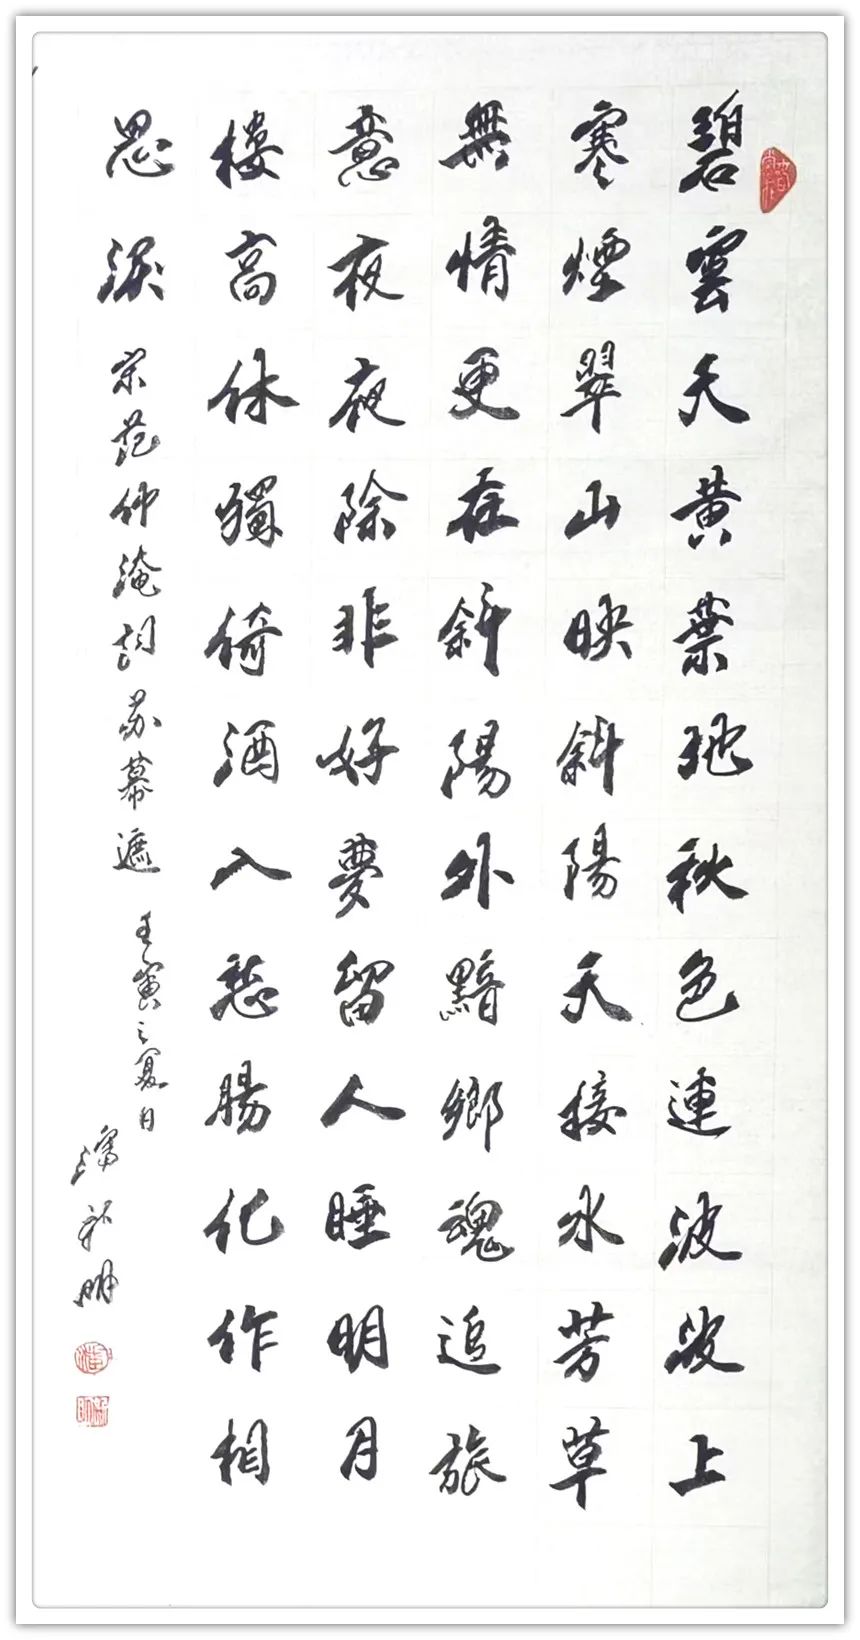 碧雲天黄葉地秋色連波波上
寒煙翠山映斜陽天接水芳草
無情更在斜陽外黯鄉魂追旅
意夜夜除非好夢留人睡明月
樓高休獨倚酒入愁腸化作相
思淚
宋范仲淹詞苏幕遮
壬寅之夏月
潘明